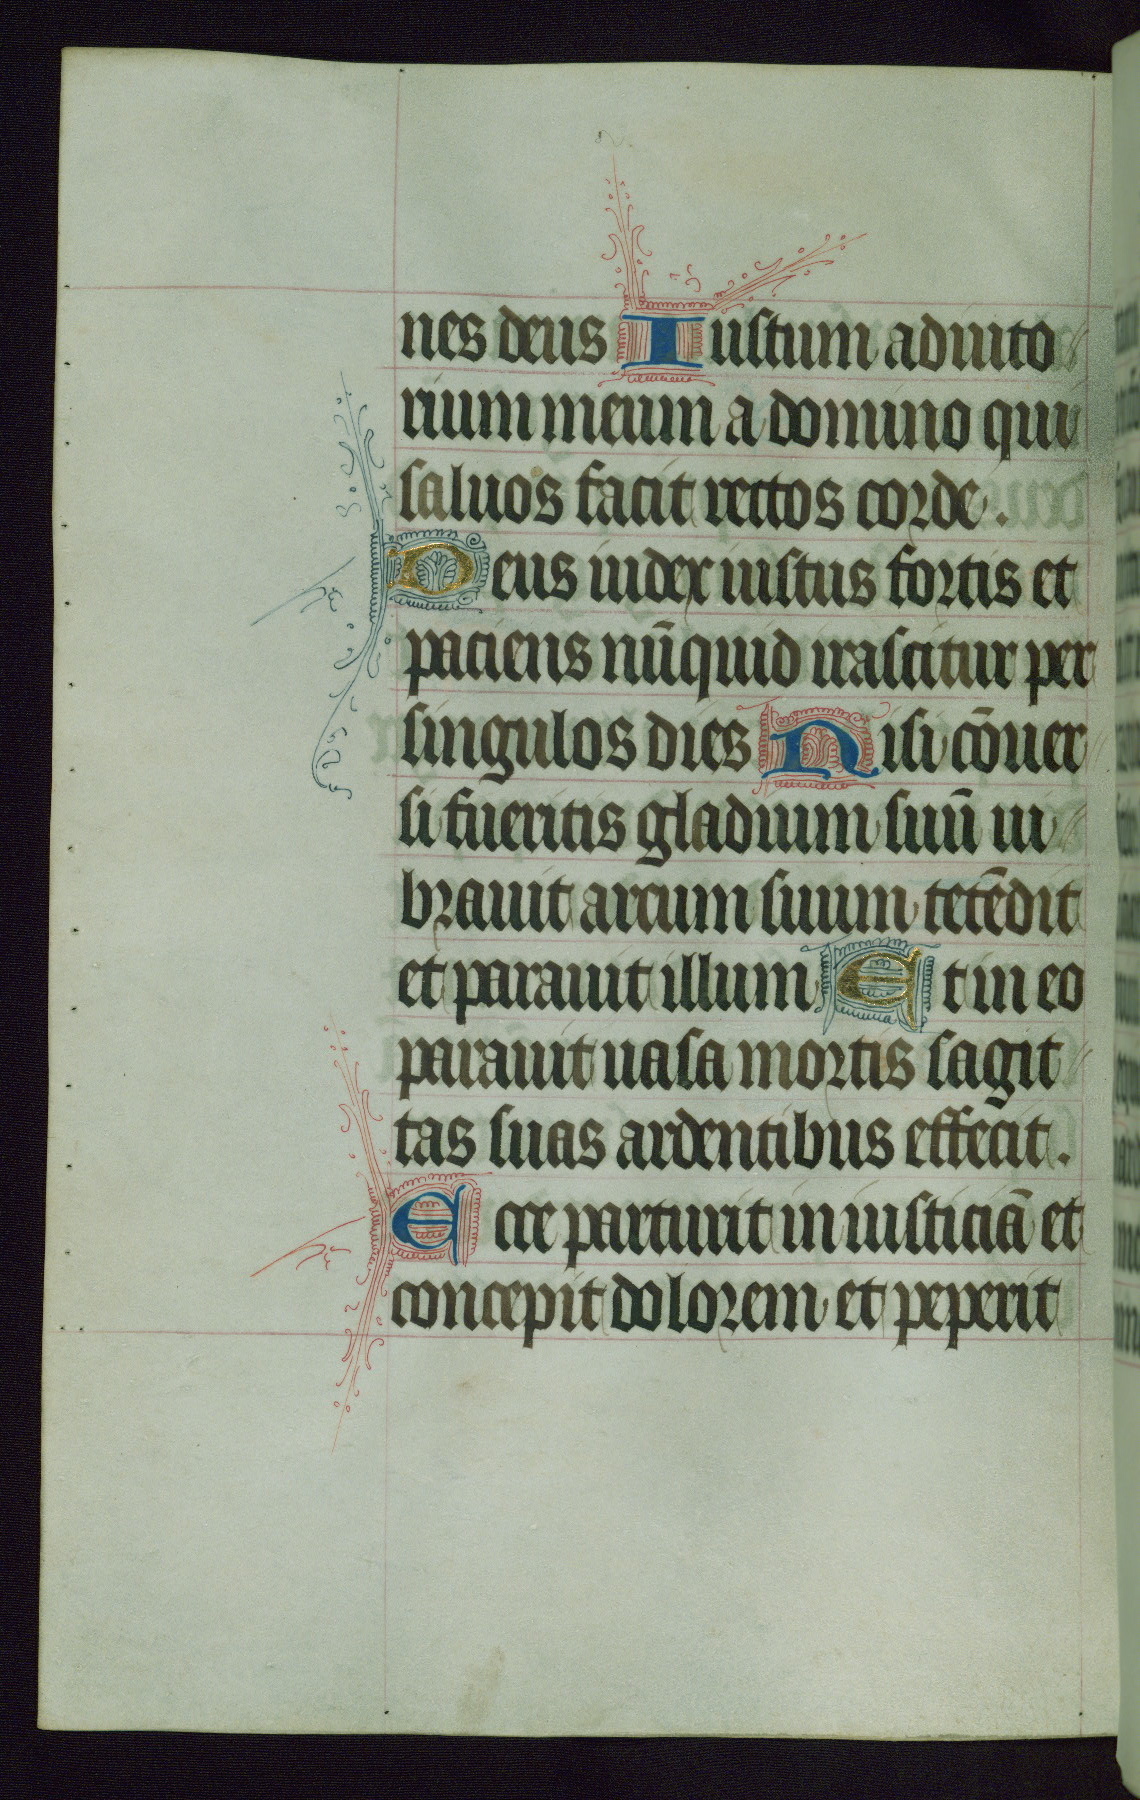 nes deus Iustum adiuto
rium meum a domino qui
saluos facit rectos corde.
Deus iudex iustus fortis et
paciens nūquid irascitur per
singulos dies Nisi cōuer
si fueritis gladium suū ui
brauit arcum suum tetēdit
et parauit illum Et in eo
parauit uasa mortis sagit
tas suas ardentibus effecit.
Ecce parturit in iusticiā et
concepit dolorem et peperit